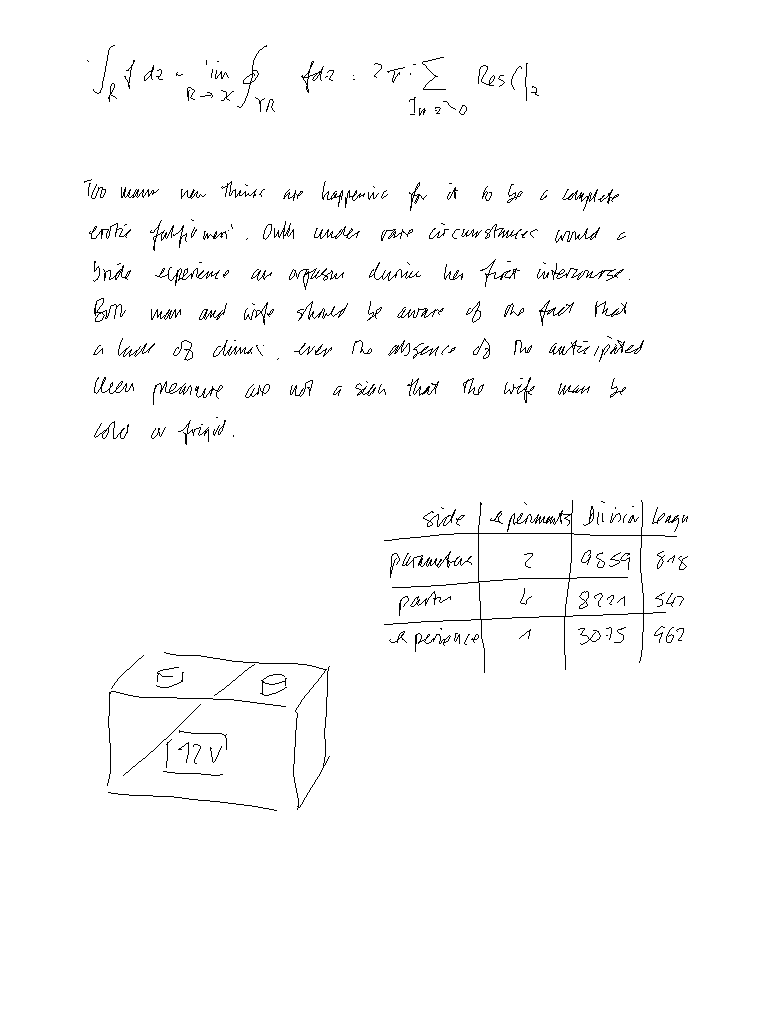 ∫_R f dz = lim_{R→∞} ∮_{γR} f dz = 2πi ∑_{Im z>0} Res(|_z
Too many new things are happening for it to be a complete
erotic fulfillment. Only under rare circumstances would a
bride experience an orgasm during her first intercourse.
Both man and wife should be aware of the fact that
a lack of climax, even the absence of the anticipated
keen pleasure are not a sign that the wife may be
cold or frigid.
side experiments Division League
parameters 2 9859 818
party 4 8221 547
experience 1 3075 962
12V